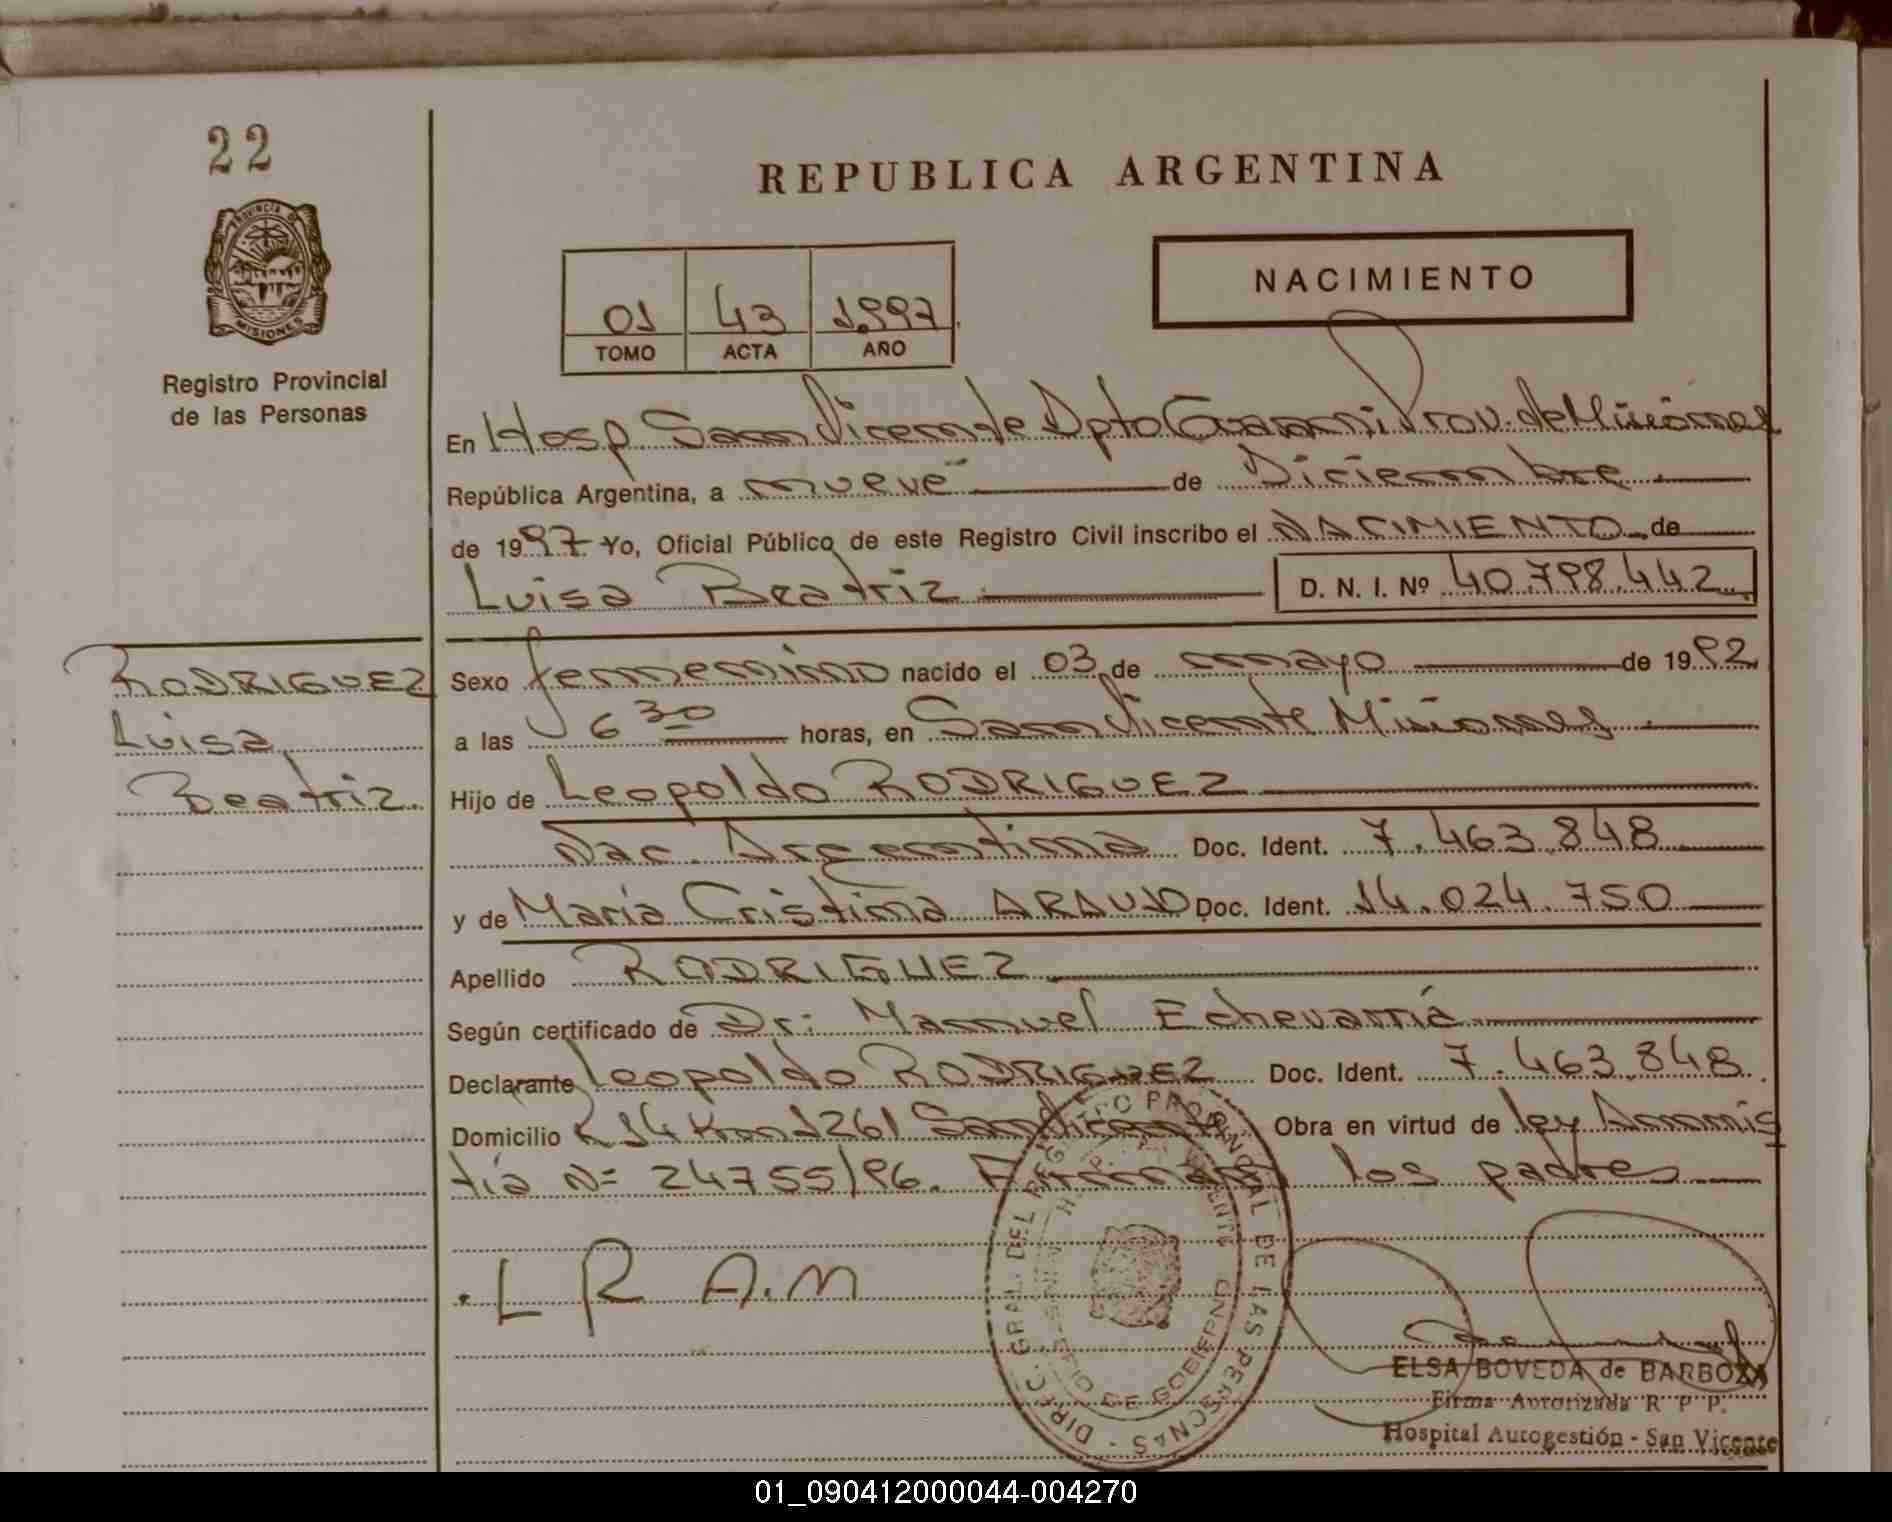 22
PROVINCIA DE
MISIONES
Registro Provincial
de las Personas
REPUBLICA ARGENTINA
NACIMIENTO
01 43 1.997
TOMO ACTA AÑO
En Hosp San Vicente Dpto Guarani Prov. de Misiones
República Argentina, a nueve de Diciembre
de 1997 Yo, Oficial Público de este Registro Civil inscribo el NACIMIENTO de
Luisa Beatriz D. N. I. Nº 40.798.442
RODRIGUEZ
Luisa
Beatriz.
Sexo femenino nacido el 03 de mayo de 1992
a las 6 30 horas, en San Vicente Misiones
Hijo de Leopoldo RODRIGUEZ
Nac. Argentina Doc. Ident. 7.463.848
y de María Cristina ARAUJO Doc. Ident. 14.024.750
Apellido RODRIGUEZ
Según certificado de Dr: Manuel Echevarría
Declarante Leopoldo RODRIGUEZ Doc. Ident. 7.463.848
Domicilio R 14 Km 1261 San Vicente Obra en virtud de ley Amnis
tía Nº 24755/96. Firman los padres
L R A.M
DIREC. GRAL. DEL REGISTRO PROVINCIAL DE LAS PERSONAS
ELSA BOVEDA de BARBOZA
Firma Autorizada R P P.
Hospital Autogestión - San Vicente
01_090412000044-004270